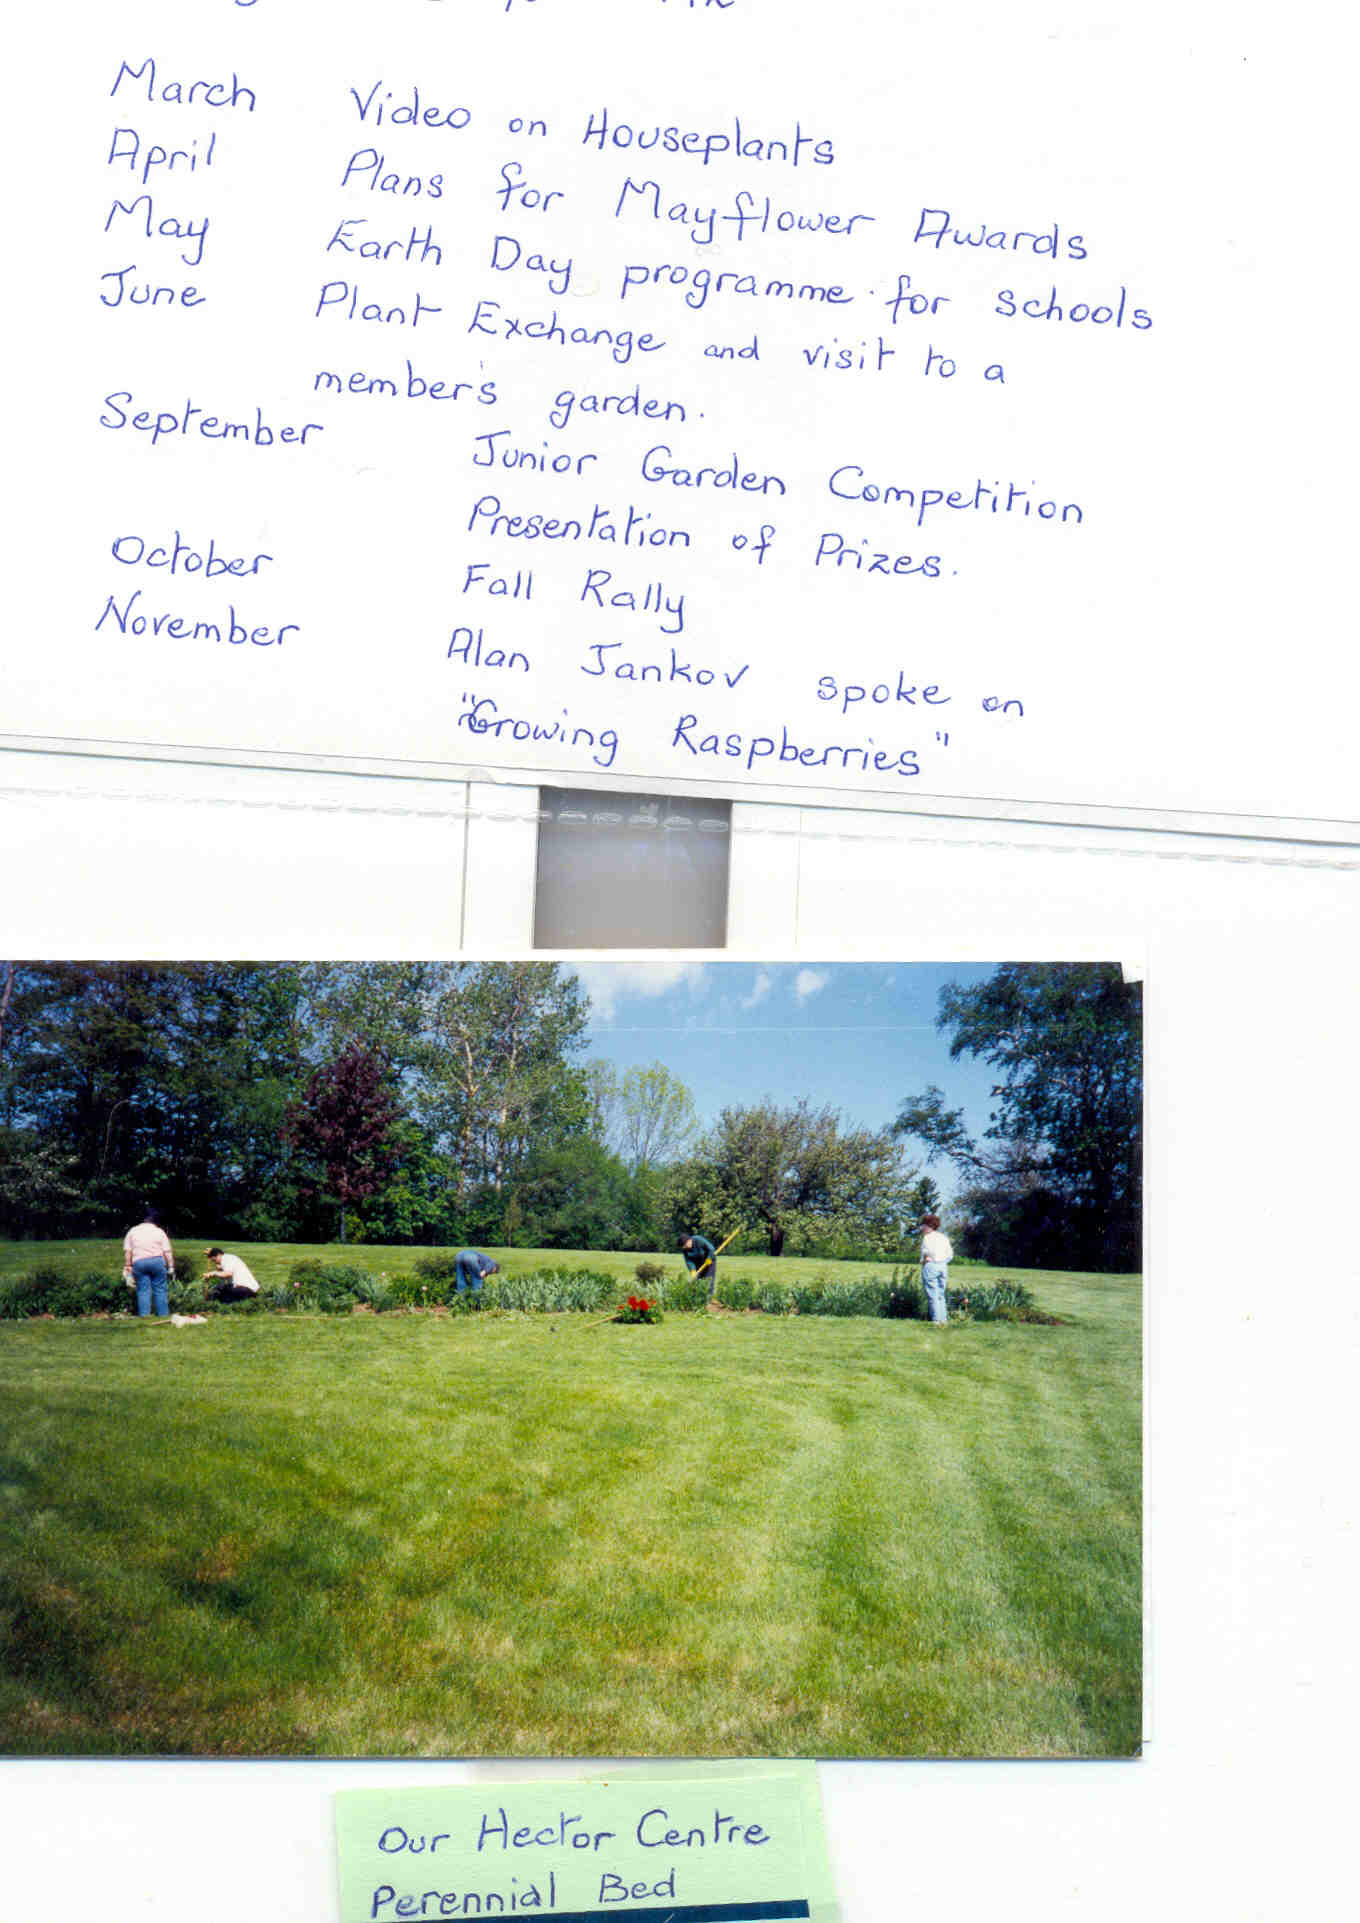 March Video on Houseplants
April Plans for Mayflower Awards
May Earth Day programme for schools
June Plant Exchange and visit to a
member's garden.
September Junior Garden Competition
Presentation of Prizes.
October Fall Rally
November Alan Jankov spoke on
"Growing Raspberries"
Our Hector Centre
Perennial Bed